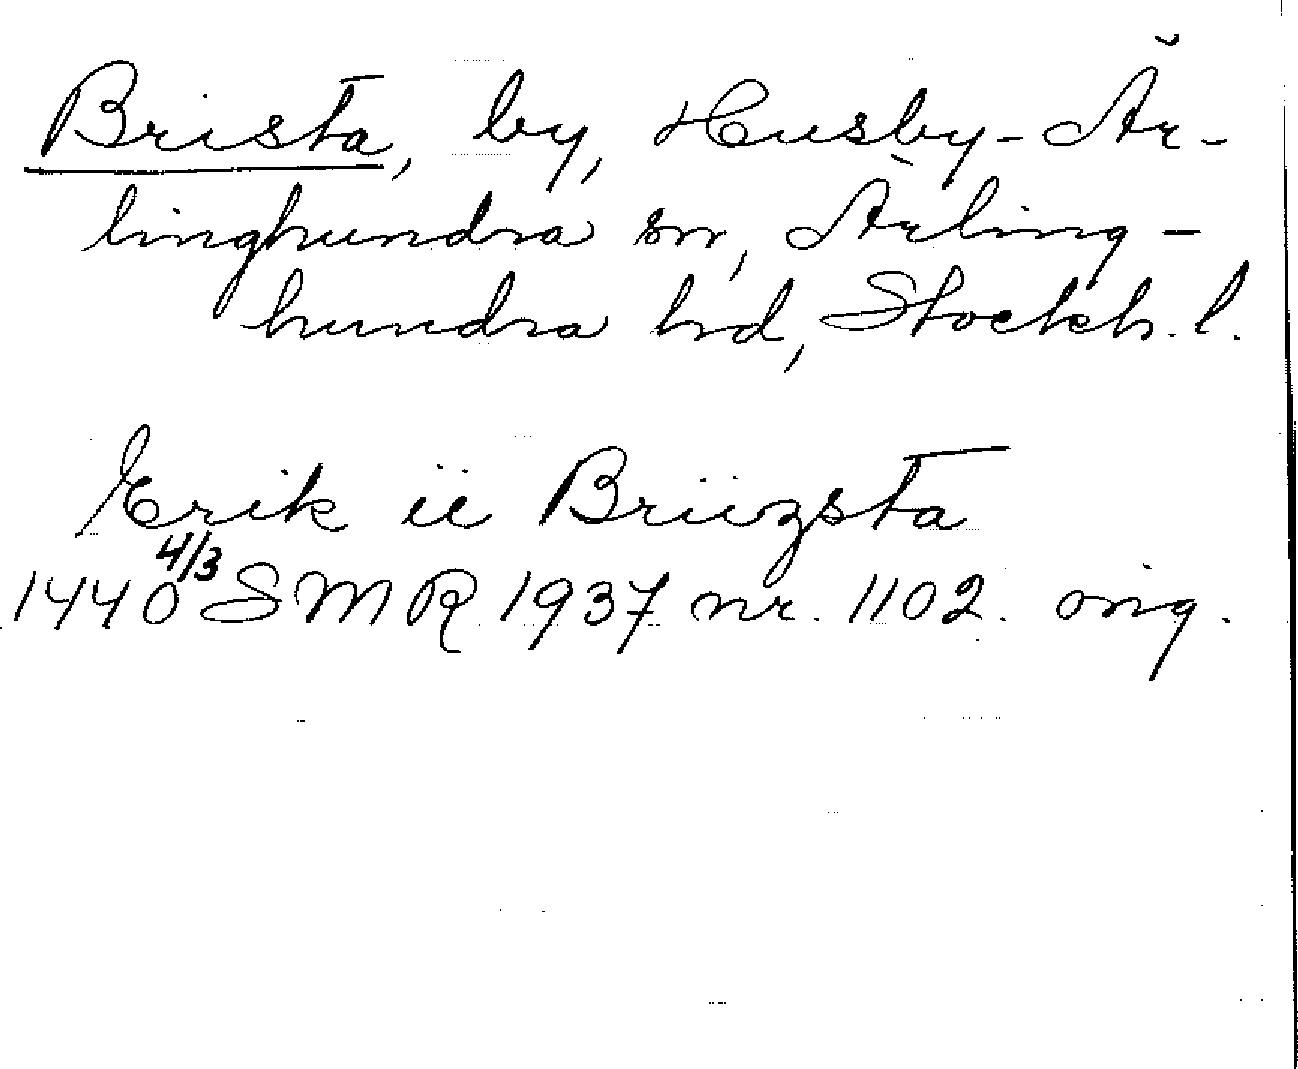 Brista, by, Husby-Är-
linghundra sn, Ärling-
hundra hd, Stockh. l.
Erik ii Briizsta
1440 4/3 SMR 1937 nr. 1102. orig.